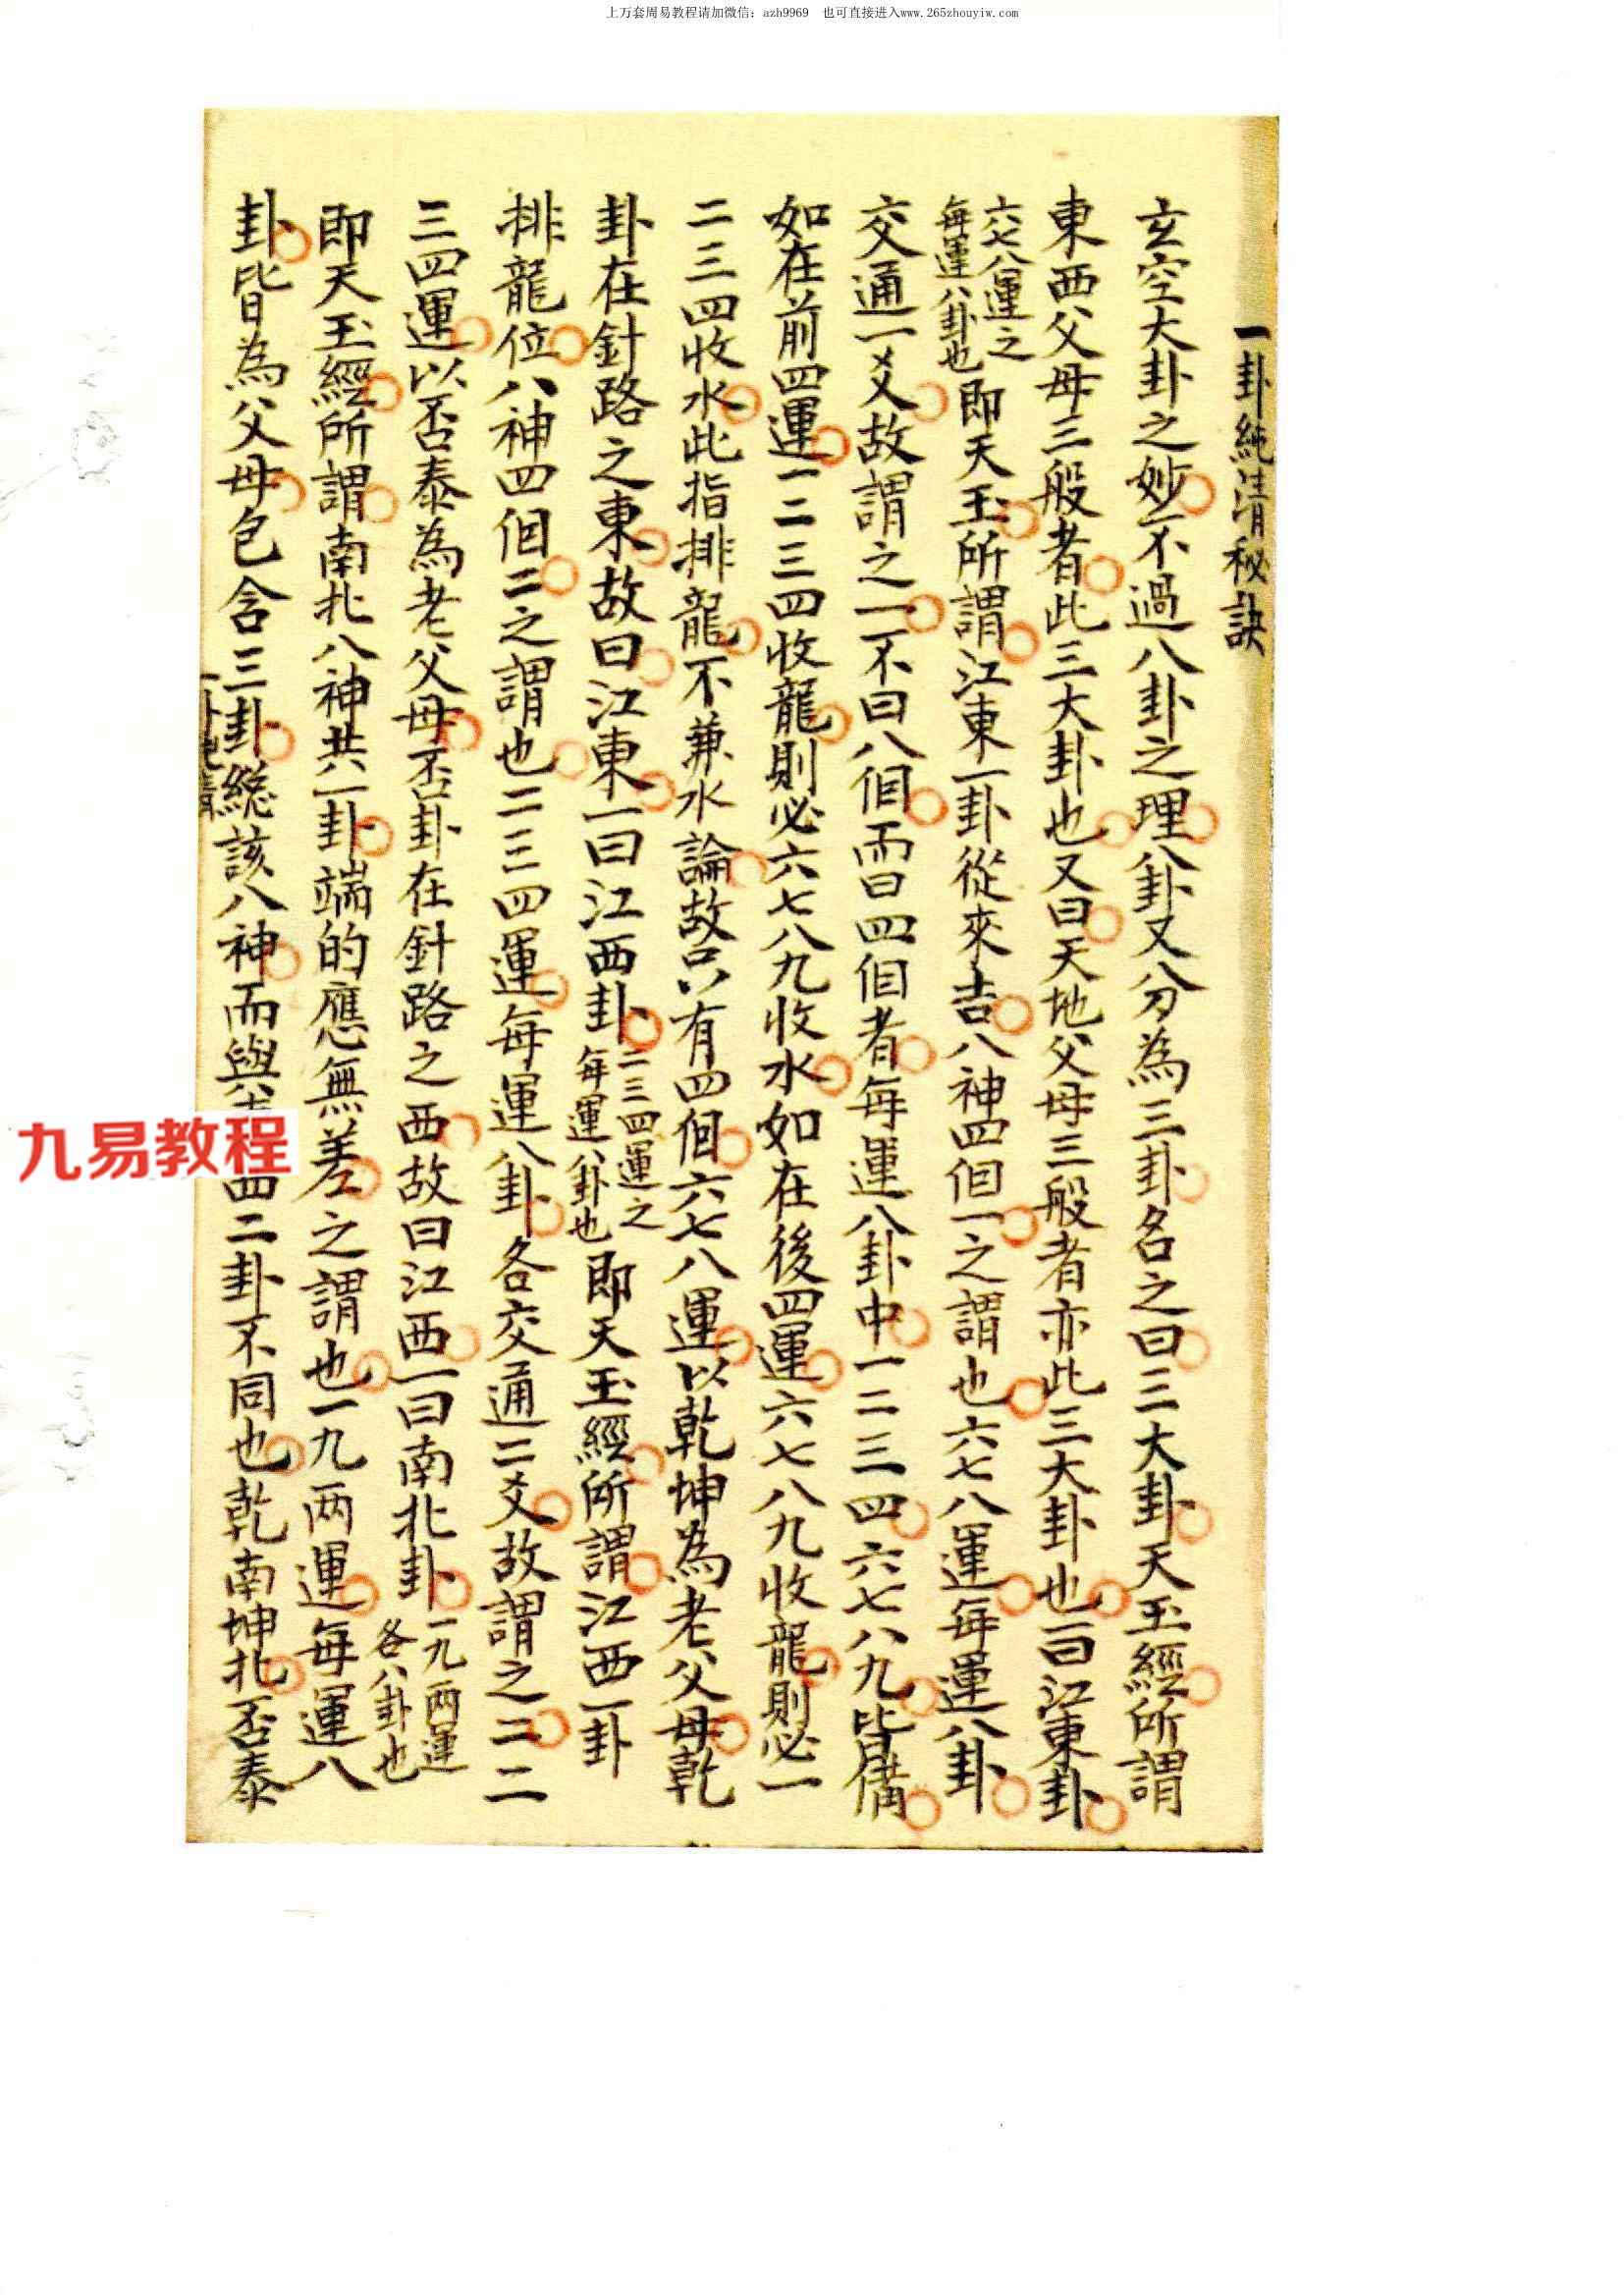 上万套周易教程请加微信：azh9969　也可直接进入www.265zhouyiw.com
一卦純清秘訣
玄空大卦之妙不過八卦之理八卦又分為三卦名之曰三大卦天玉經所謂
東西父母三般者此三大卦也又曰天地父母三般者亦此三大卦也一曰江東卦
六七八運之
每運八卦也
即天玉所謂江東一卦從來吉八神四個一之謂也六七八運每運八卦
交通一爻故謂之一不曰八個而曰四個者每運八卦中一二三四六七八九皆備
如在前四運一二三四收龍則必六七八九收水如在後四運六七八九收龍則必一
二三四收水此指排龍不兼水論故只有四個六七八運以乾坤為老父母乾
卦在針路之東故曰江東一曰江西卦
二三四運之
每運八卦也
即天玉經所謂江西一卦
排龍位八神四個二之謂也二三四運每運八卦各交通二爻故謂之二二
三四運以否泰為老父母否卦在針路之西故曰江西一曰南北卦
一九兩運
各八卦也
即天玉經所謂南北八神共一卦端的應無差之謂也一九两運每運八
卦皆為父母包含三卦總該八神而與四二卦不同也乾南坤北否泰
九易教程